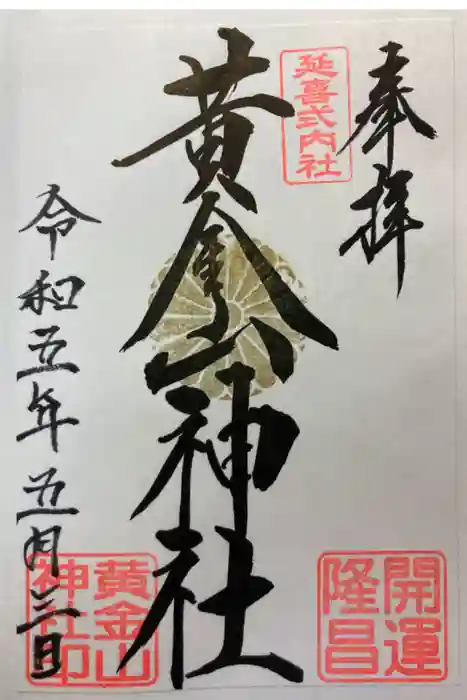 奉拝
延喜式内社
黄金山神社
令和五年五月三日
開運
隆昌
黄金山
神社印